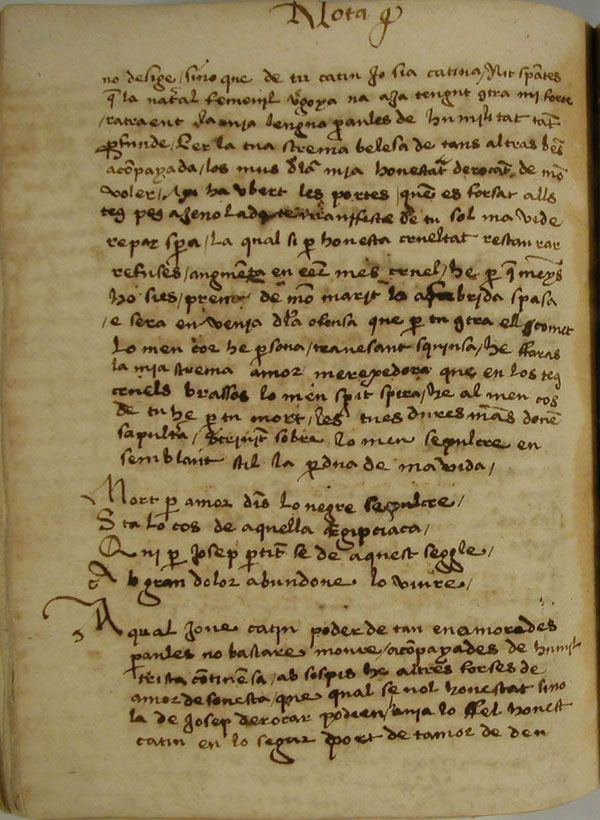 Nota
no desige / sino que de tu catiu Jo sia catiua / Nit spātes
q̄ la nat͂al femenil v̓goya na aJa tengut 9tra mi forte
/ ratraent dla mia lengua p̱aules de humilitat tāt
p̱funde / Per la tua strema belesa de tans altras bēs
acōpayada / los mus dla mia honestat derocāt de mō
voler / ha vbert les portes / quem es forsat als
teus peus agenolada te de tu sol ma vide
reparar spera / La qual si p̱ honesta crueltat restaurar
refuses / augmēta en eēr mes cruel / he p̱ q̄ meys
ho sies / prent de mō marit la spasa
/ e sera en venia dla ofensa que p̱ tu 9tra ell comet
Lo men cor he p̱sona / trauesant squinsa / he ffaras
la mia strema amor merexedora que en los teus
cruels brassos lo men sp̱it spira / he al men cos
de tu he p̱ tu mort / les tues dures māns donē
sapultra / Scriuint sobre lo men sepulcre en
semblant stil la p̱dua de ma vida /
Mort p̱ amor dīs lo negre sepulcre /
Sta lo cos de aquella Egipciaca /
Qui p̱ Josep p̱tit se de aquest seggle /
Ab gran dolor abundone lo viure /
A qual Joue catiu poder de tan enamorades
p̱aules no bastare moure / acōpayades de humil
trista cōtinēsa / ab sospis he altres forses de
amor desonesta / que qual se vol honestat sino
la de Josep derocar podien / ania lo ffel honest
catiu en lo segur port de tamor de deu